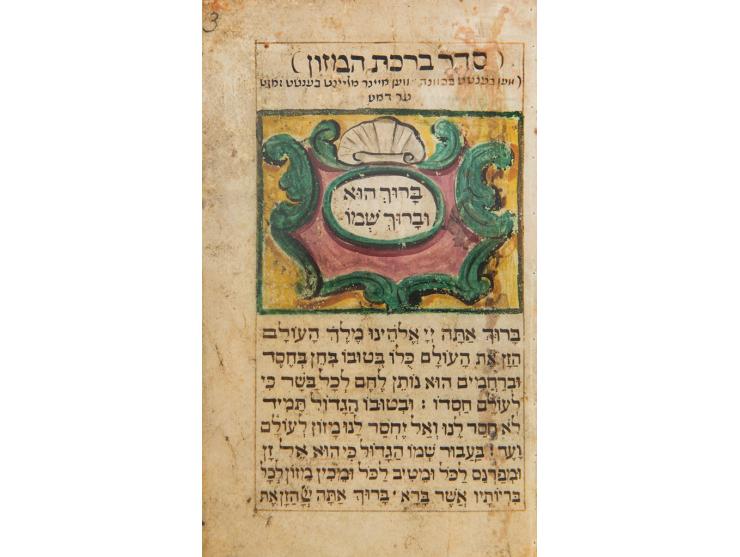 3
(סדר ברכת המזון)
(ווען בענטט בכוונה ווען מיינר
ער
בָּרוּךְ הוּא
וּבָרוּךְ שְׁמוֹ
בָּרוּךְ אַתָּה יְיָ אֱלֹהֵינוּ מֶלֶךְ הָעוֹלָם
הַזָּן אֶת הָעוֹלָם כֻּלּוֹ בְּטוּבוֹ בְּחֵן בְּחֶסֶד
וּבְרַחֲמִים הוּא נוֹתֵן לֶחֶם לְכָל בָּשָׂר כִּי
לְעוֹלָם חַסְדּוֹ : וּבְטוּבוֹ הַגָּדוֹל תָּמִיד
לֹא חָסַר לָנוּ וְאַל יֶחְסַר לָנוּ מָזוֹן לְעוֹלָם
וָעֶד בַּעֲבוּר שְׁמוֹ הַגָּדוֹל כִּי הוּא אֵל זָן
וּמְפַרְנֵס לַכֹּל וּמֵטִיב לַכֹּל וּמֵכִין מָזוֹן לְכָל
בְּרִיּוֹתָיו אֲשֶׁר בָּרָא ׳ בָּרוּךְ אַתָּה יְיָ הַזָּן אֶת